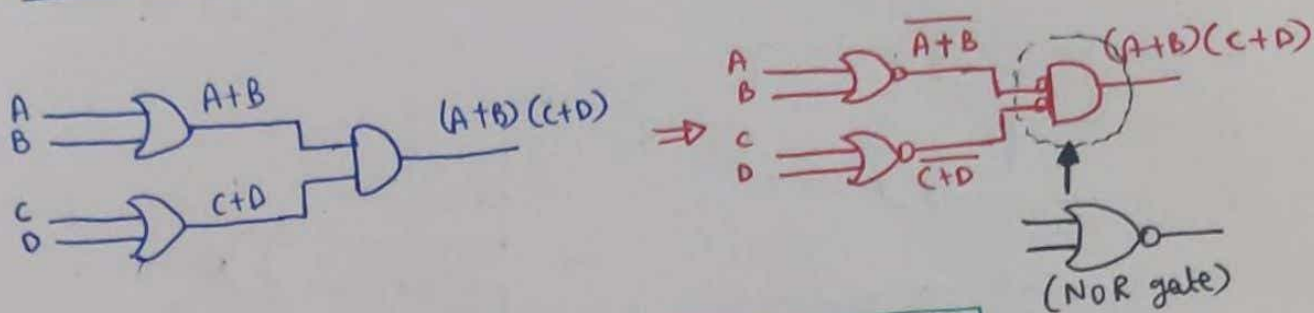 A
B
A+B
C
D
C+D
(A+B)(C+D)
⇒
A
B
$\overline{A+B}$
C
D
$\overline{C+D}$
(A+B)(C+D)
(NOR gate)